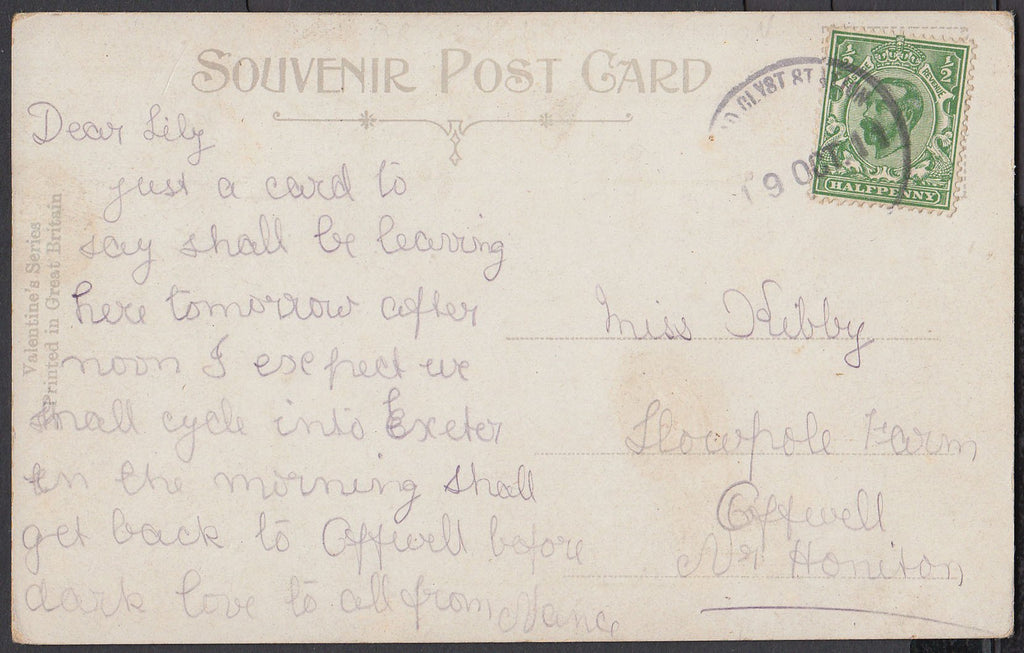 SOUVENIR POST CARD
Valentine's Series
Printed in Great Britain
Dear Lily
just a card to
say shall be leaving
here tomorrow after
noon I expect we
shall cycle into Exeter
in the morning shall
get back to Offwell before
dark love to all from Nance
CLYST ST
19 OCT 11
½ ½
REVENUE
HALFPENNY
Miss Kibby
Farm
Offwell
Nr Honiton